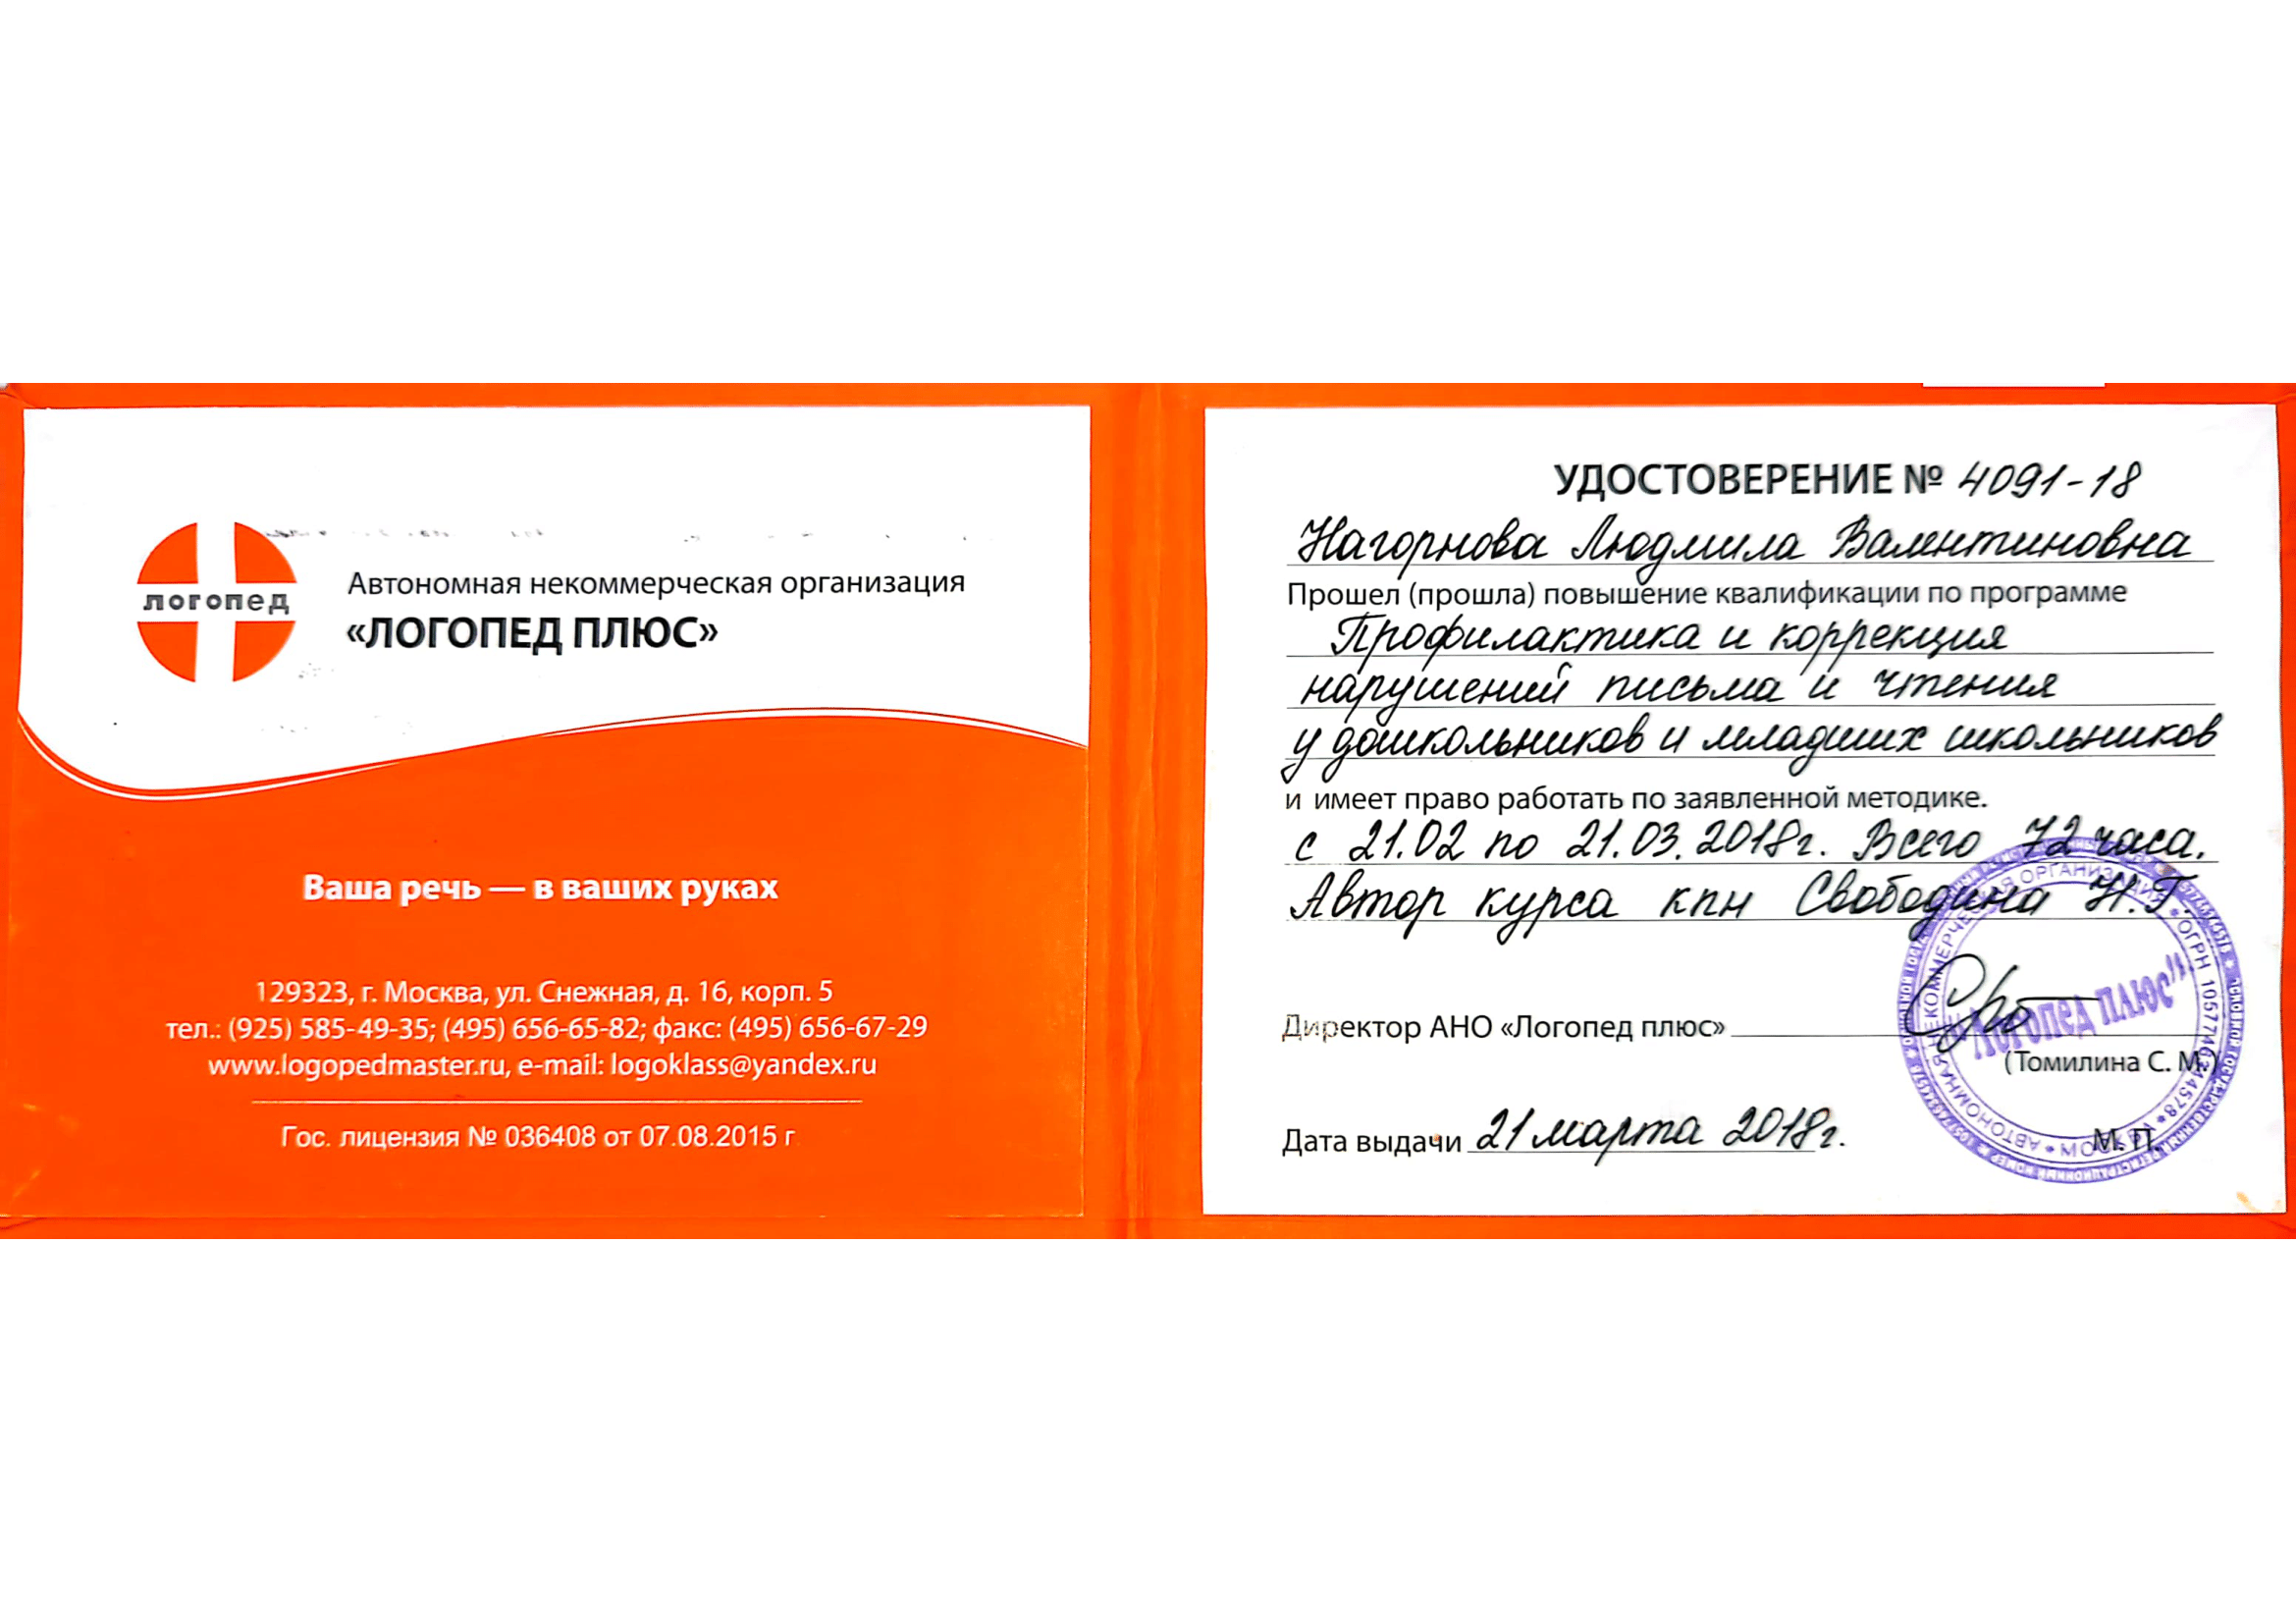 логопед
Автономная некоммерческая организация
«ЛОГОПЕД ПЛЮС»
Ваша речь — в ваших руках
129323, г. Москва, ул. Снежная, д. 16, корп. 5
тел.: (925) 585-49-35; (495) 656-65-82; факс: (495) 656-67-29
www.logopedmaster.ru, e-mail: logoklass@yandex.ru
Гос. лицензия № 036408 от 07.08.2015 г
УДОСТОВЕРЕНИЕ № 4091-18
Нагорнова Людмила Валентиновна
Прошел (прошла) повышение квалификации по программе
Профилактика и коррекция
нарушений письма и чтения
у дошкольников и младших школьников
и имеет право работать по заявленной методике.
с 21.02 по 21.03.2018г. Всего 72 часа.
Автор курса кпн Свободина Н.Г.
Директор АНО «Логопед плюс»
(Томилина С. М.)
Дата выдачи 21 марта 2018г.
М. П.
АВТОНОМНАЯ НЕКОММЕРЧЕСКАЯ ОРГАНИЗАЦИЯ
ОГРН
МОСКВА
"Логопед плюс"